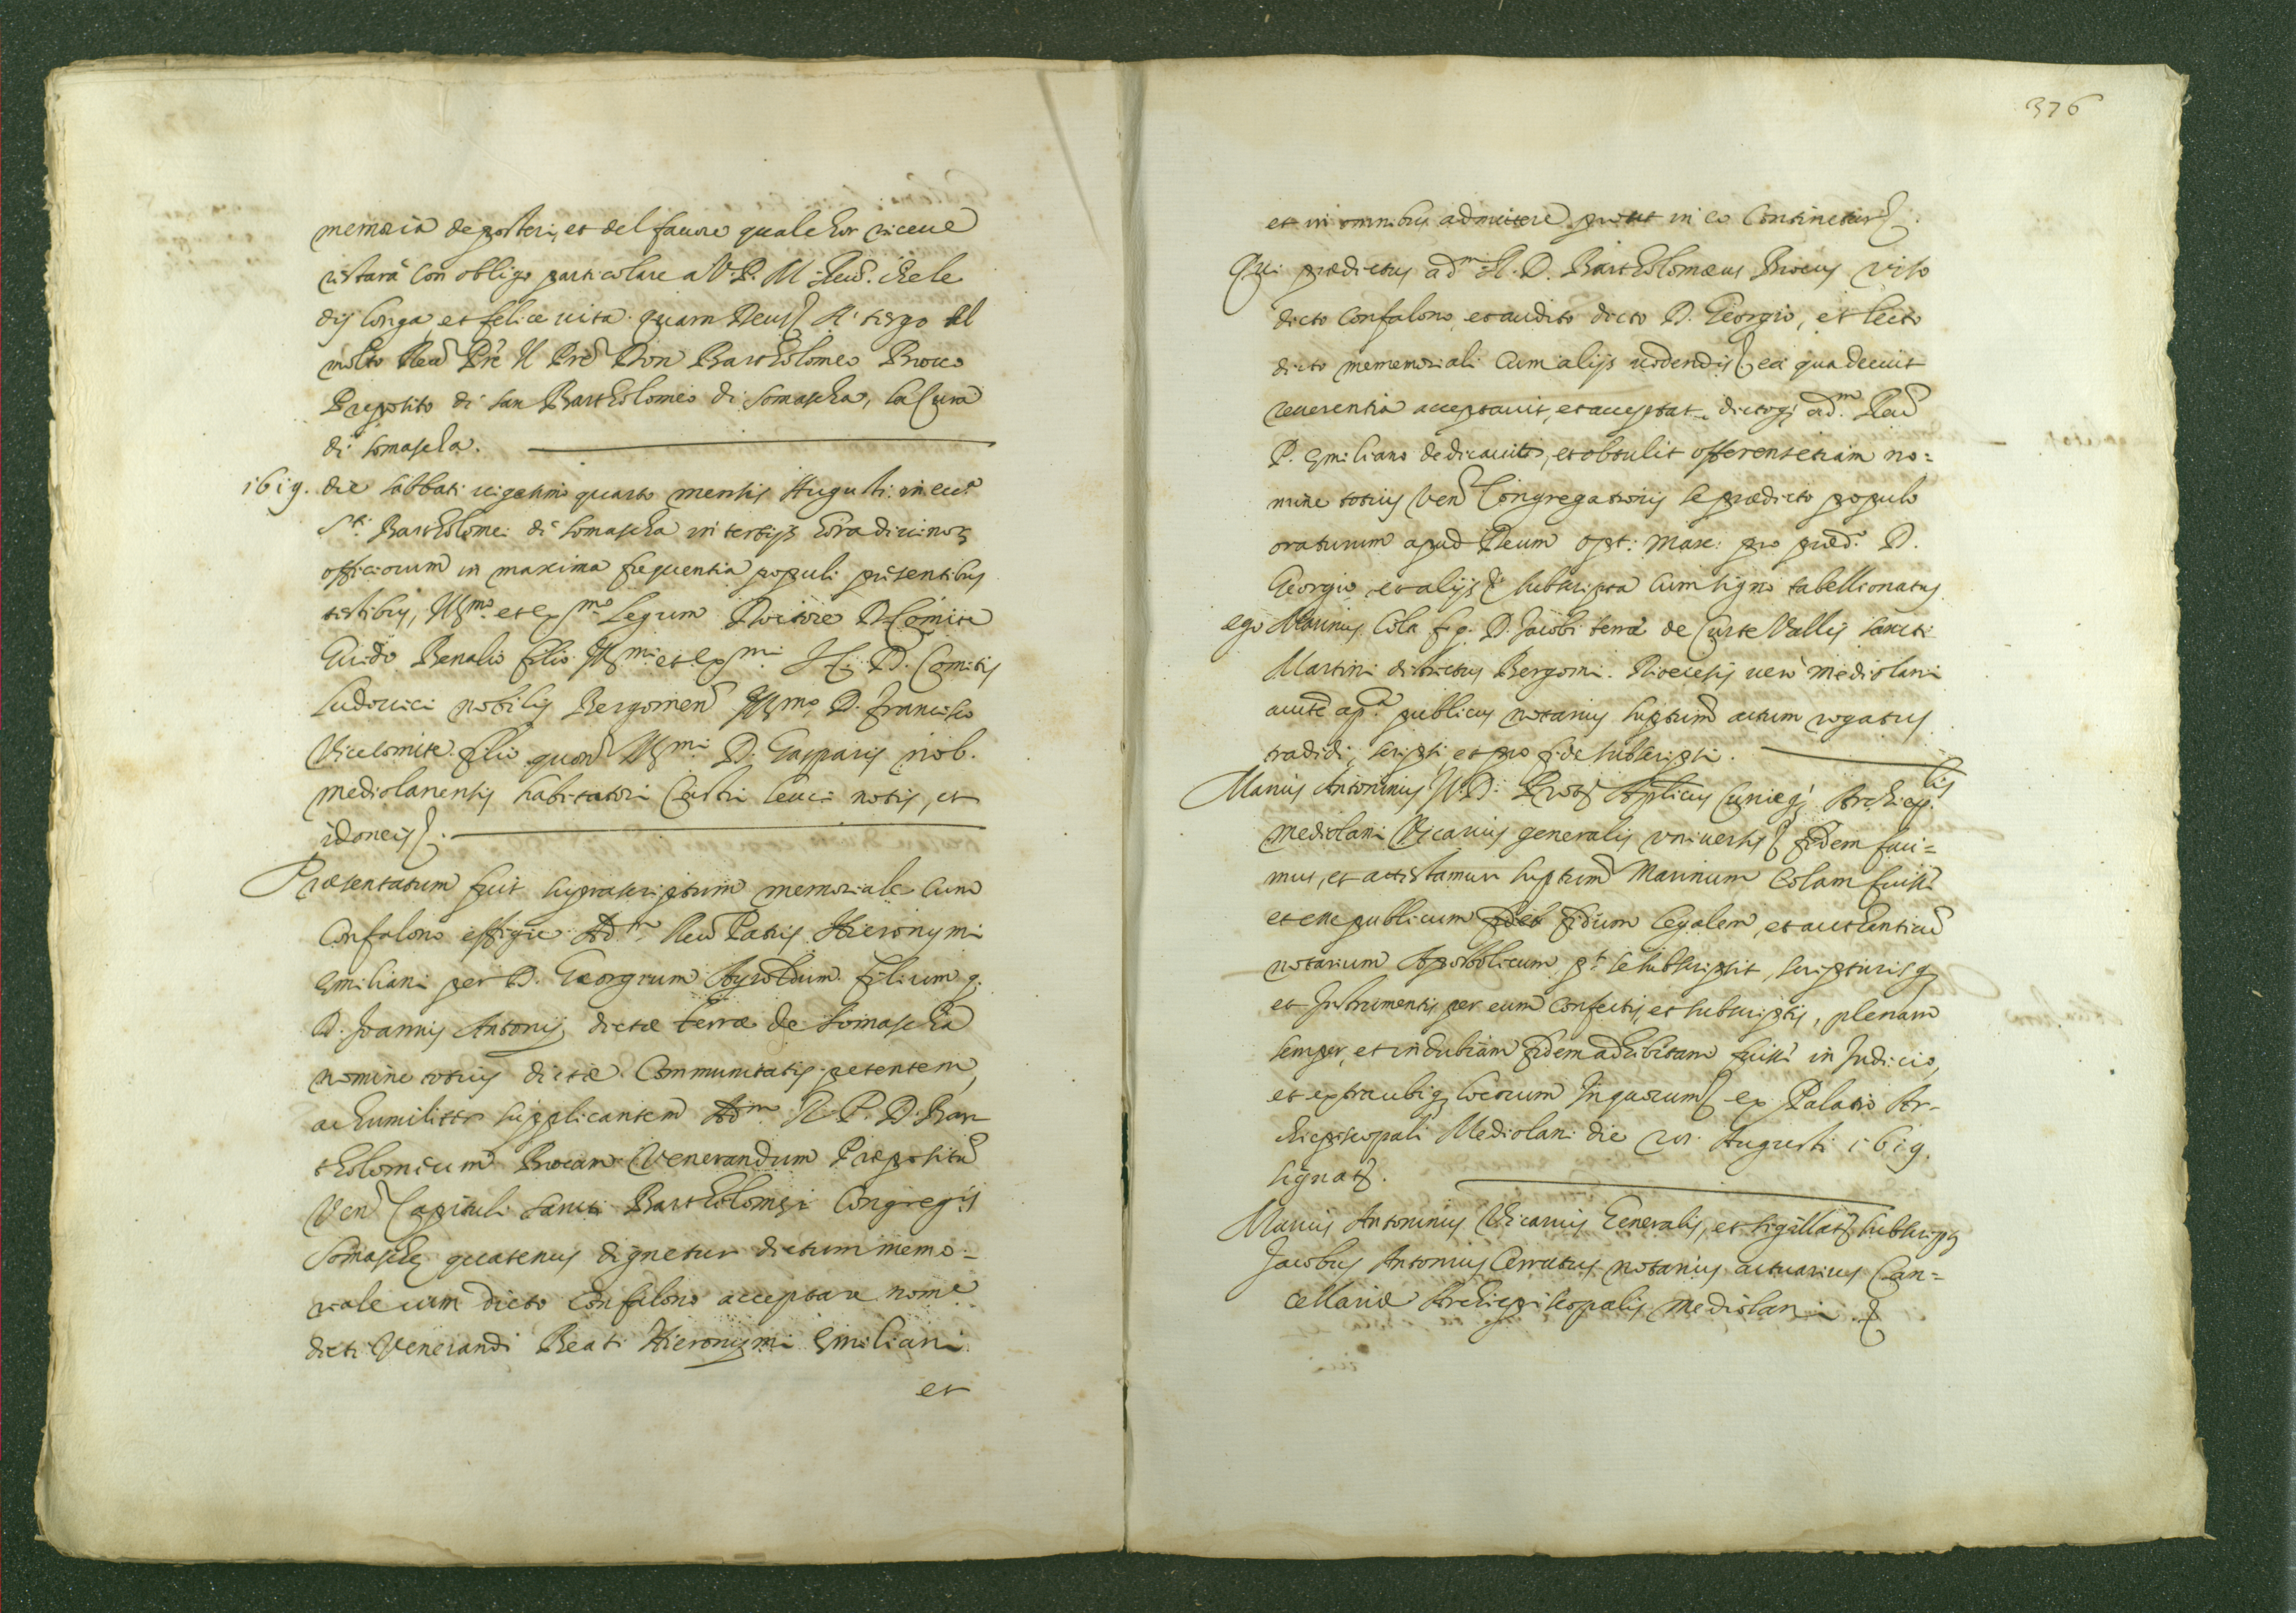 memoria de posteri, et del fauore quale hor riceue
ristarà con obligo particolare a V. P. M. Reud. che le
dij longa, et felice uita. quam Deus A tergo Al
molto Reud Pre Il Pre Don Bartholomeo Brocco
Preposito di san Bartholomeo di Somascha, la Cura
di Somascha.
1619. die sabbati uigesimo quarto mensis Augusti in ecc.a
S.ti Bartholomei di Somascha in tertijs hora diuinor
officiorum in maxima frequentia populi presentibus
testibus, Ill.mo et ex.mo Legum Doctore D. Comite
Guido Benalio filio Ill.mi et ex.mi D. Comitis
Ludouici nobilis Bergomen Ill.mo D. Francisco
Vicecomite filio quon Ill.mi D. Gasparis nob.
mediolanensis habitatori Castri leuci notis, et
idoneis.
Præsentatum fuit suprascriptum memoriale cum
Confalono effigie Ad.m Reud Patris Hieronymi
Emiliani per D. Georgium Ayroldum filium q.
D. Joannis Antonij dictæ terræ de Somascha
nomine totius dictæ Communitatis petentem,
ac humiliter supplicantem Ad.m R. P. D. Bar
tholomeum Brocum Venerandum Præpositu
Ven Capituli Sancti Bartholomei Congreg.is
Somaschę quatenus dignetur dictum memo-
riale cum dicto Confalono acceptare nom.e
dicti Venerandi Beati Hieronymi Emiliani
et
376
et in omnibus admittere prout in eo Continetur.
Qui prædictus ad.m R. D. Bartholomæus Brocus viso
dicto Confalono, et audito dicto D. Georgio, et lecto
dicto mememoriali cum alijs uidendis ea qua decuit
reuerentia acceptauit, et acceptat dictoq. ad.m Reud
P. Emiliano dedicauit, et obtulit offerens etiam no=
mine totius Ven Congregationis se prædicto populo
oraturum apud Deum opt: Max: pro præd.o D.
Georgio, et alijs subscripta cum signo tabellionatus
ego Marinus Cola f. q. D. Jacobi terræ de Curte Vallis sancti
Martini districtus Bergomi. Diocesis uero Mediolani
aucte ap.ca publicus notarius suptum actum rogatus
tradidi, scripsi, et pro fide subscripsi.
Marius Antoninus J. D. Prot. Aplicus Curieq. Archiep.lis
mediolani Vicarius generalis vniuersis fidem faci=
mus, et attestamur suptum Marinum Colam fuisse
et esse publicum fidum legalem, et authenticu
notarium Apostolicum pt se subscripsit, scripturisq.
et Instrumentis per eum confectis, et subscriptis, plenam
semper, et indubiam fidem adhibitam fuisse in Judicio,
et extra ubiq. locorum Inquorum ex Palatio Ar-
chiepiscopali Mediolani die Augusti 1619.
signat.
Marius Antoninus Vicarius Generalis, et sigillat subscrip.
Jacobus Antonius Cerrutus notarius actuarius Can=
cellariæ Archiepiscopalis mediolani